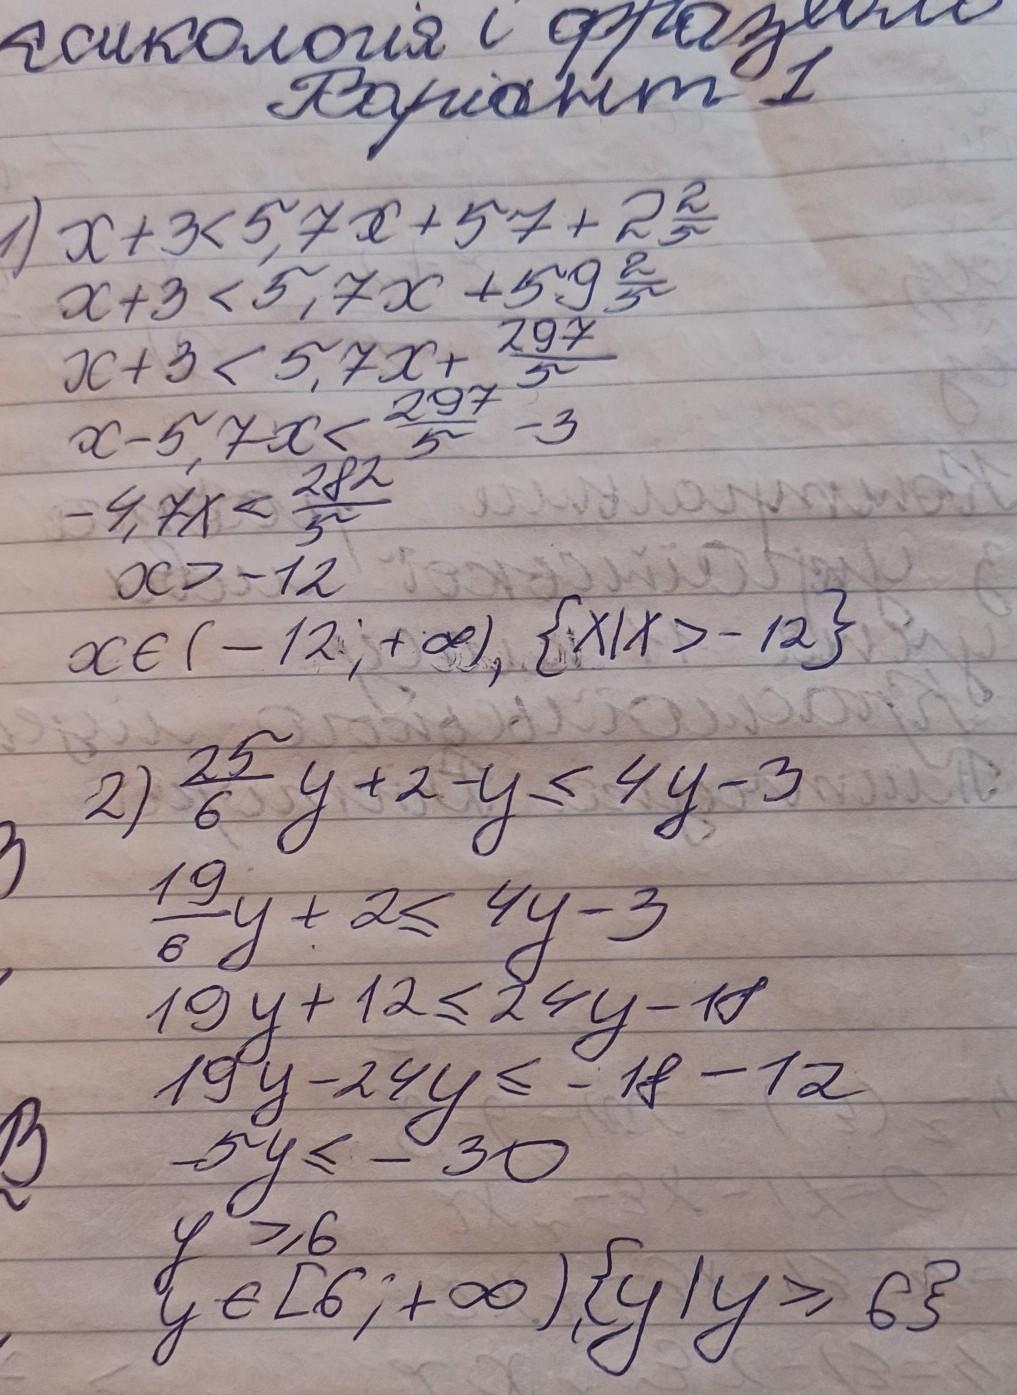 ексикологія і фразеоло
Варіант 1
1) x+3<5,7x+57+2 2/5
x+3<5,7x+59 2/5
x+3<5,7x+ 297/5
x-5,7x< 297/5 -3
-4,7x< 282/5
x>-12
x∈(-12;+∞), {x|x>-12}
2) 25/6 y+2-y≤4y-3
19/6 y+2≤4y-3
19y+12≤24y-18
19y-24y≤-18-12
-5y≤-30
y≥6
y∈[6;+∞),{y|y≥6}